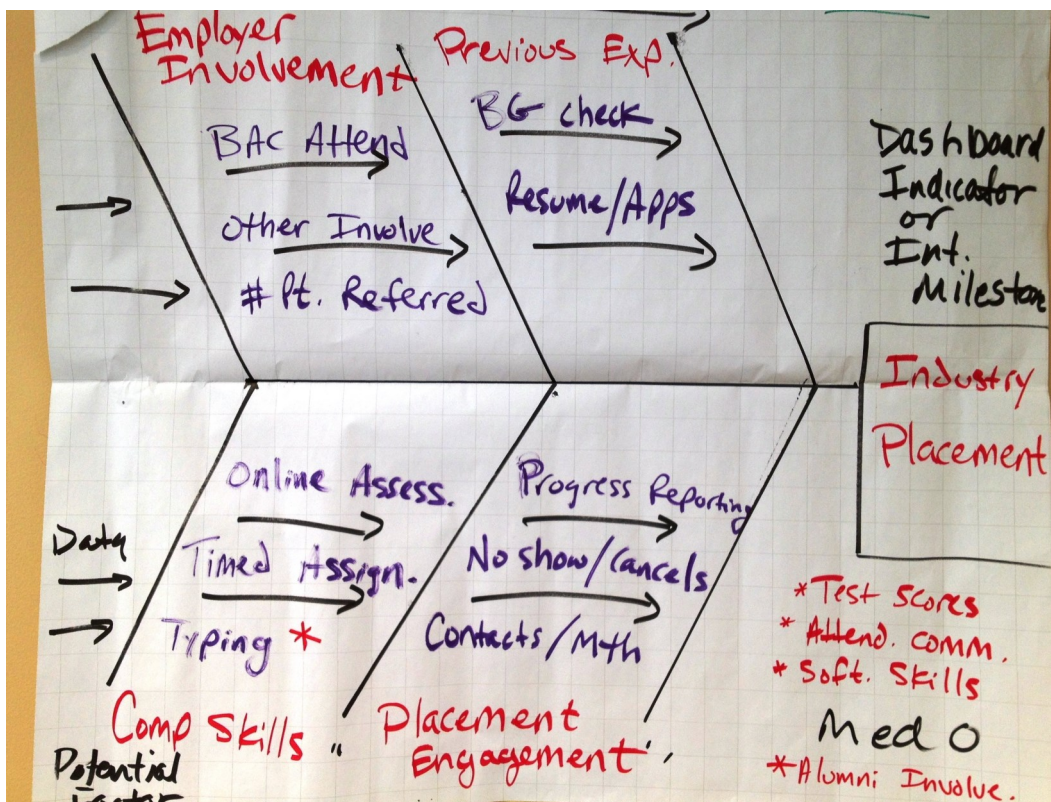 Employer
Involvement
Previous Exp.
BAC Attend
Other Involve
# Pt. Referred
BG check
Resume/Apps
Dashboard
Indicator
or
Int.
Milestone
Industry
Placement
Data
Online Assess.
Timed Assign.
Typing *
Comp Skills "
Progress Reporting
No show/Cancels
Contacts/Mth
Placement
Engagement
* Test scores
* Attend. comm.
* Soft. Skills
Med O
* Alumni Involve.
Potential
Factor